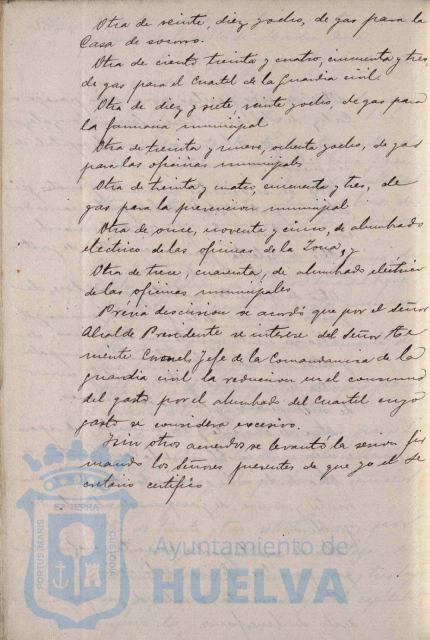 Otra de veinte, diez y ocho, de gas para la
Casa de socorro.
Otra de ciento treinta y cuatro, cincuenta y tres,
de gas para el Cuartel de la Guardia civil
Otra de diez y siete veinte y ocho, de gas para
la farmacia municipal
Otra de treinta y nueve, ochenta y ocho, de gas
para las oficinas municipales
Otra de treinta y cuatro, cincuenta y tres, de
gas para la prevencion municipal
Otra de once, noventa y cinco, de alumbrado
eléctrico de las oficinas de la Zona, y
Otra de trece, cuarenta, de alumbrado eléctrico
de las oficinas municipales
Previa discusion se acordó que por el señor
Alcalde Presidente se interese del Señor Te
niente Coronel Jefe de la Comandancia de la
guardia civil la reduccion en el consumo
del gasto por el alumbrado del Cuartel cuyo
gasto se considera excesivo.
Y sin otros acuerdos se levantó la sesion fir
mando los Señores presentes de que yo el Se
cretario certifico
PORTUS MARIS ET TERRÆ CUSTODIA
Ayuntamiento de
HUELVA